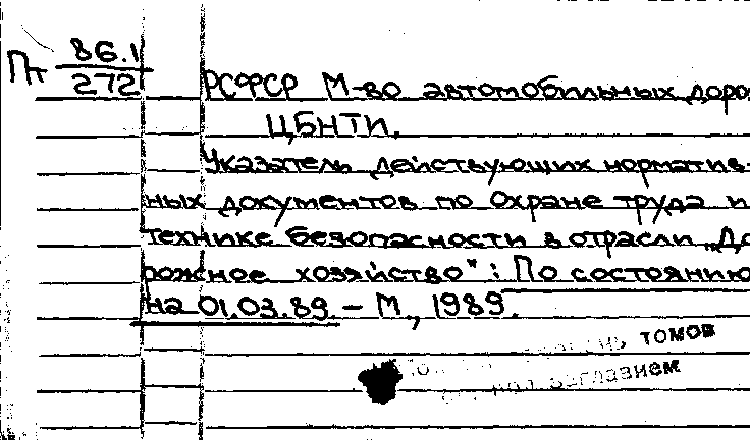 Пт 86.1
272
РСФСР М-во автомобильных доро
ЦБНТИ.
Указатель действующих норматив-
ных документов по охране труда и
технике безопасности в отрасли „До
рожное хозяйство": По состоянию
на 01.03.89. – М., 1989.
томов
под заглавием